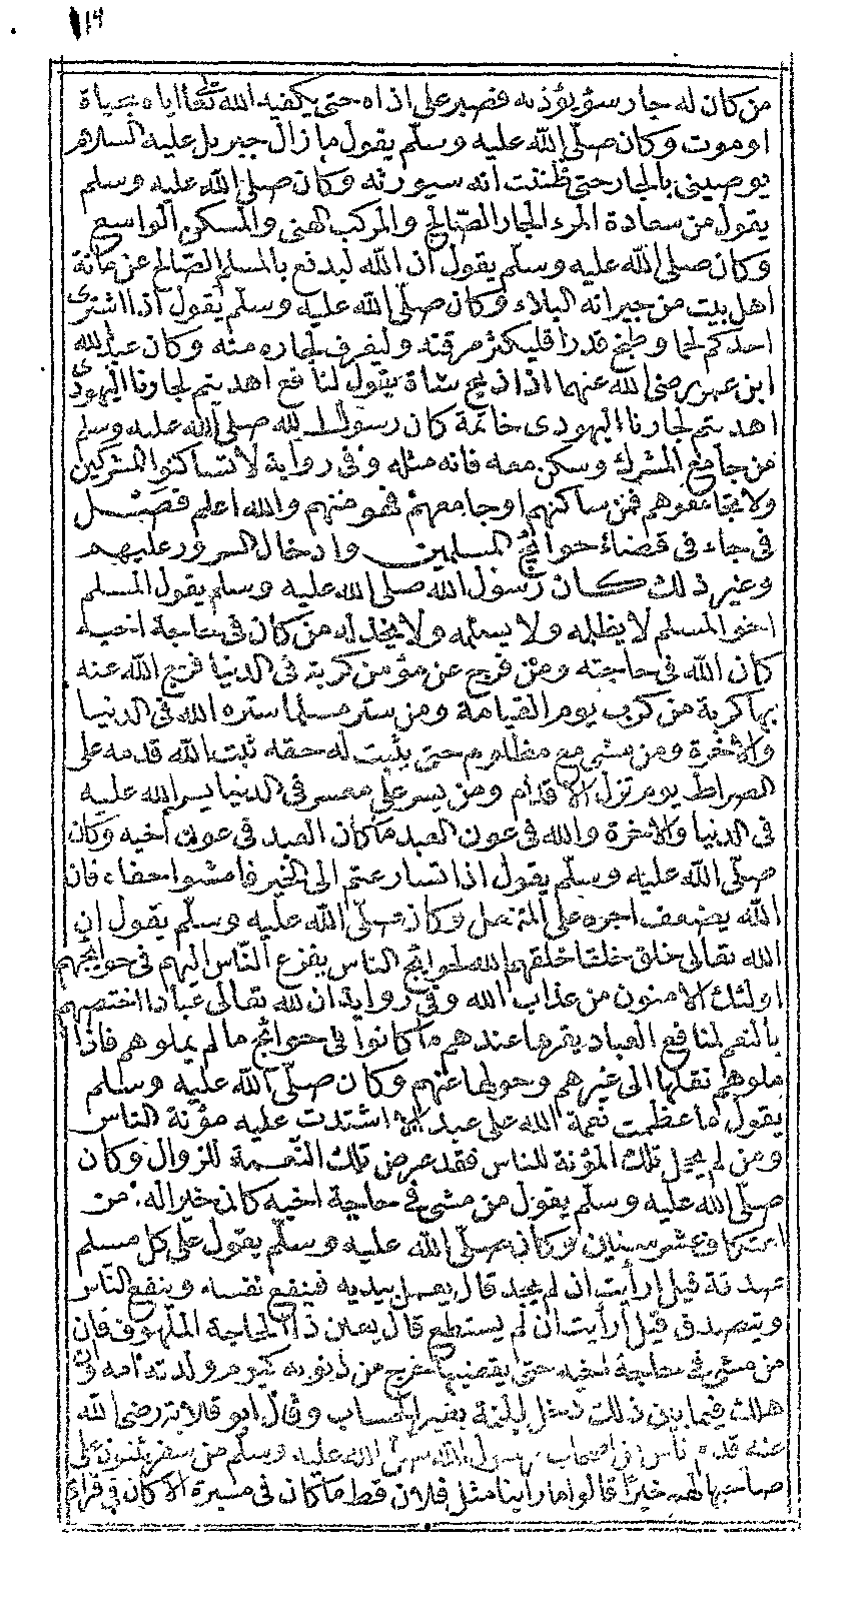 ١١٩
من كان له جار سوء يؤذيه فصبر على اذاه حتى يكفيه الله تعا اياه بحياة
او موت وكان صلى الله عليه وسلم يقول ما زال جبريل عليه السلام
يوصيني بالجار حتى ظننت انه سيورثه وكان صلى الله عليه وسلم
يقول من سعادة المرء الجار الصالح والمركب الهنى والمسكن الواسع
وكان صلى الله عليه وسلم يقول ان الله ليدفع بالمسلم الصالح عن مائة
اهل بيت من جيرانه البلاء وكان صلى الله عليه وسلم يقول اذا اشترى
احدكم لحما وطبخ قدرا فليكثر مرقته وليغرف لجاره منه وكان عبد الله
ابن عمر رضى الله عنهما اذا ذبح شاة يقول لنافع اهديتم لجارنا اليهودى
اهديتم لجارنا اليهودى خاتمة كان رسول الله صلى الله عليه وسلم
من جامع المشرك وسكن معه فانه مثله وفى رواية لا تساكنوا المشركين
ولا تجامعوهم فمن ساكنهم او جامعهم فهو منهم والله اعلم فصل
فى جاء فى قضاء حوائج المسلمين وادخال السرور عليهم
وغير ذلك كان رسول الله صلى الله عليه وسلم يقول المسلم
اخو المسلم لا يظلمه ولا يسلمه ولا يخذله من كان فى حاجة اخيه
كان الله فى حاجته ومن فرج عن مؤمن كربة فى الدنيا فرج الله عنه
بها كربة من كرب يوم القيامة ومن ستر مسلما ستره الله فى الدنيا
والاخرة ومن مشى مع مظلوم حتى يثبت له حقه ثبت الله قدمه على
الصراط يوم تزل الاقدام ومن يسر على معسر فى الدنيا يسر الله عليه
فى الدنيا والاخرة والله فى عون العبد ما كان العبد فى عون اخيه وكان
صلى الله عليه وسلم يقول اذا تسارعتم الى الخير فامشوا حفاء فان
الله يضعف اجره على المتنعل وكان صلى الله عليه وسلم يقول ان
الله تعالى خلق خلقا خلقهم الله لحوائج الناس يفزع الناس اليهم فى حوائجهم
اولئك الآمنون من عذاب الله وفى رواية ان لله تعالى عبادا اختصهم
بالنعم لمنافع العباد يقرها عندهم ما كانوا فى حوائج ما لم يملوهم فاذا
ملوهم نقلها الى غيرهم وحولها عنهم وكان صلى الله عليه وسلم
يقول ما عظمت نعمة الله على عبد الا اشتدت عليه مؤنة الناس
ومن لم يحمل تلك المؤنة للناس فقد عرض تلك النعمة للزوال وكان
صلى الله عليه وسلم يقول من مشى فى حاجة اخيه كان خيرا له من
اعتكاف عشر سنين وكان صلى الله عليه وسلم يقول على كل مسلم
صدقة قيل ارأيت ان لم يجد قال يعمل بيديه فينفع نفسه وينفع الناس
ويتصدق قيل ارأيت ان لم يستطع قال يعين ذا الحاجة الملهوف فان
من مشى فى حاجة اخيه حتى يقضيها خرج من ذنوبه كيوم ولدته امه وان
هلك فيما بين ذلك دخل الجنة بغير حساب وقال ابو قلابة رضى الله
عنه قدم ناس من اصحاب رسول الله صلى الله عليه وسلم من سفر يثنون على
صاحب لهم خيرا قالوا ما رأينا مثل فلان قط ما كان فى مسيرة الا كان فى قراءة